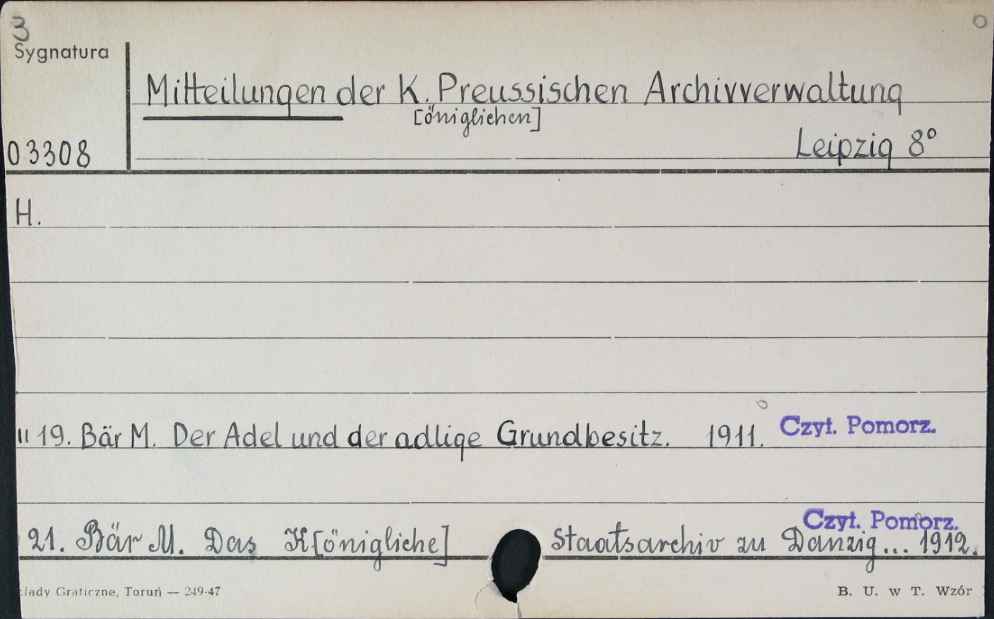 3
Sygnatura
Mitteilungen der K. Preussischen Archivverwaltung
[öniglichen]
03308
Leipzig 8°
H.
" 19. Bär M. Der Adel und der adlige Grundbesitz. 1911. Czyt. Pomorz.
Czyt. Pomorz.
21. Bär M. Das K[önigliche] Staatsarchiv zu Danzig... 1912.
łady Graficzne, Toruń — 249-47
B. U. w T. Wzór